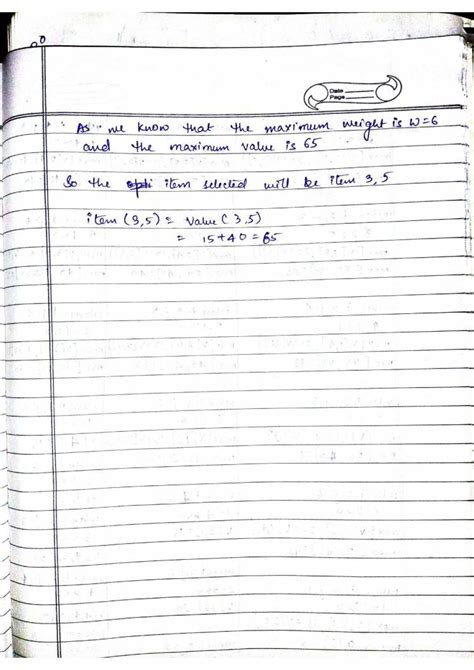 Date
Page
As we know that the maximum weight is W=6
and the maximum value is 65
So the item selected will be item 3, 5
item (3,5) = value (3,5)
= 15+40=65